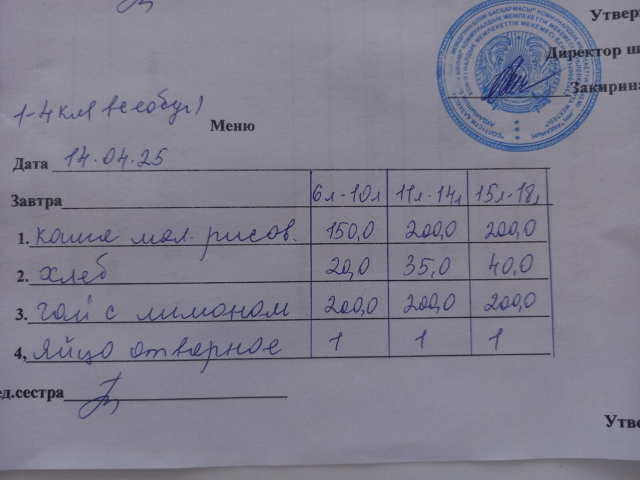 Утвер
Директор ш
Закирина
1-4 кл (всеобуч)
Меню
Дата 14.04.25
Завтра 6л-10л 11л-14л 15л-18л
1. каша мол. рисов. 150,0 200,0 200,0
2. хлеб 20,0 35,0 40,0
3. чай с лимоном 200,0 200,0 200,0
4, яйцо отварное 1 1 1
ед.сестра
Утве